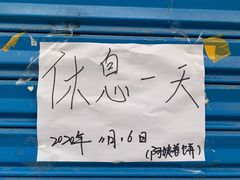 休息一天
2020年 11月16日
(阿姨普饼)